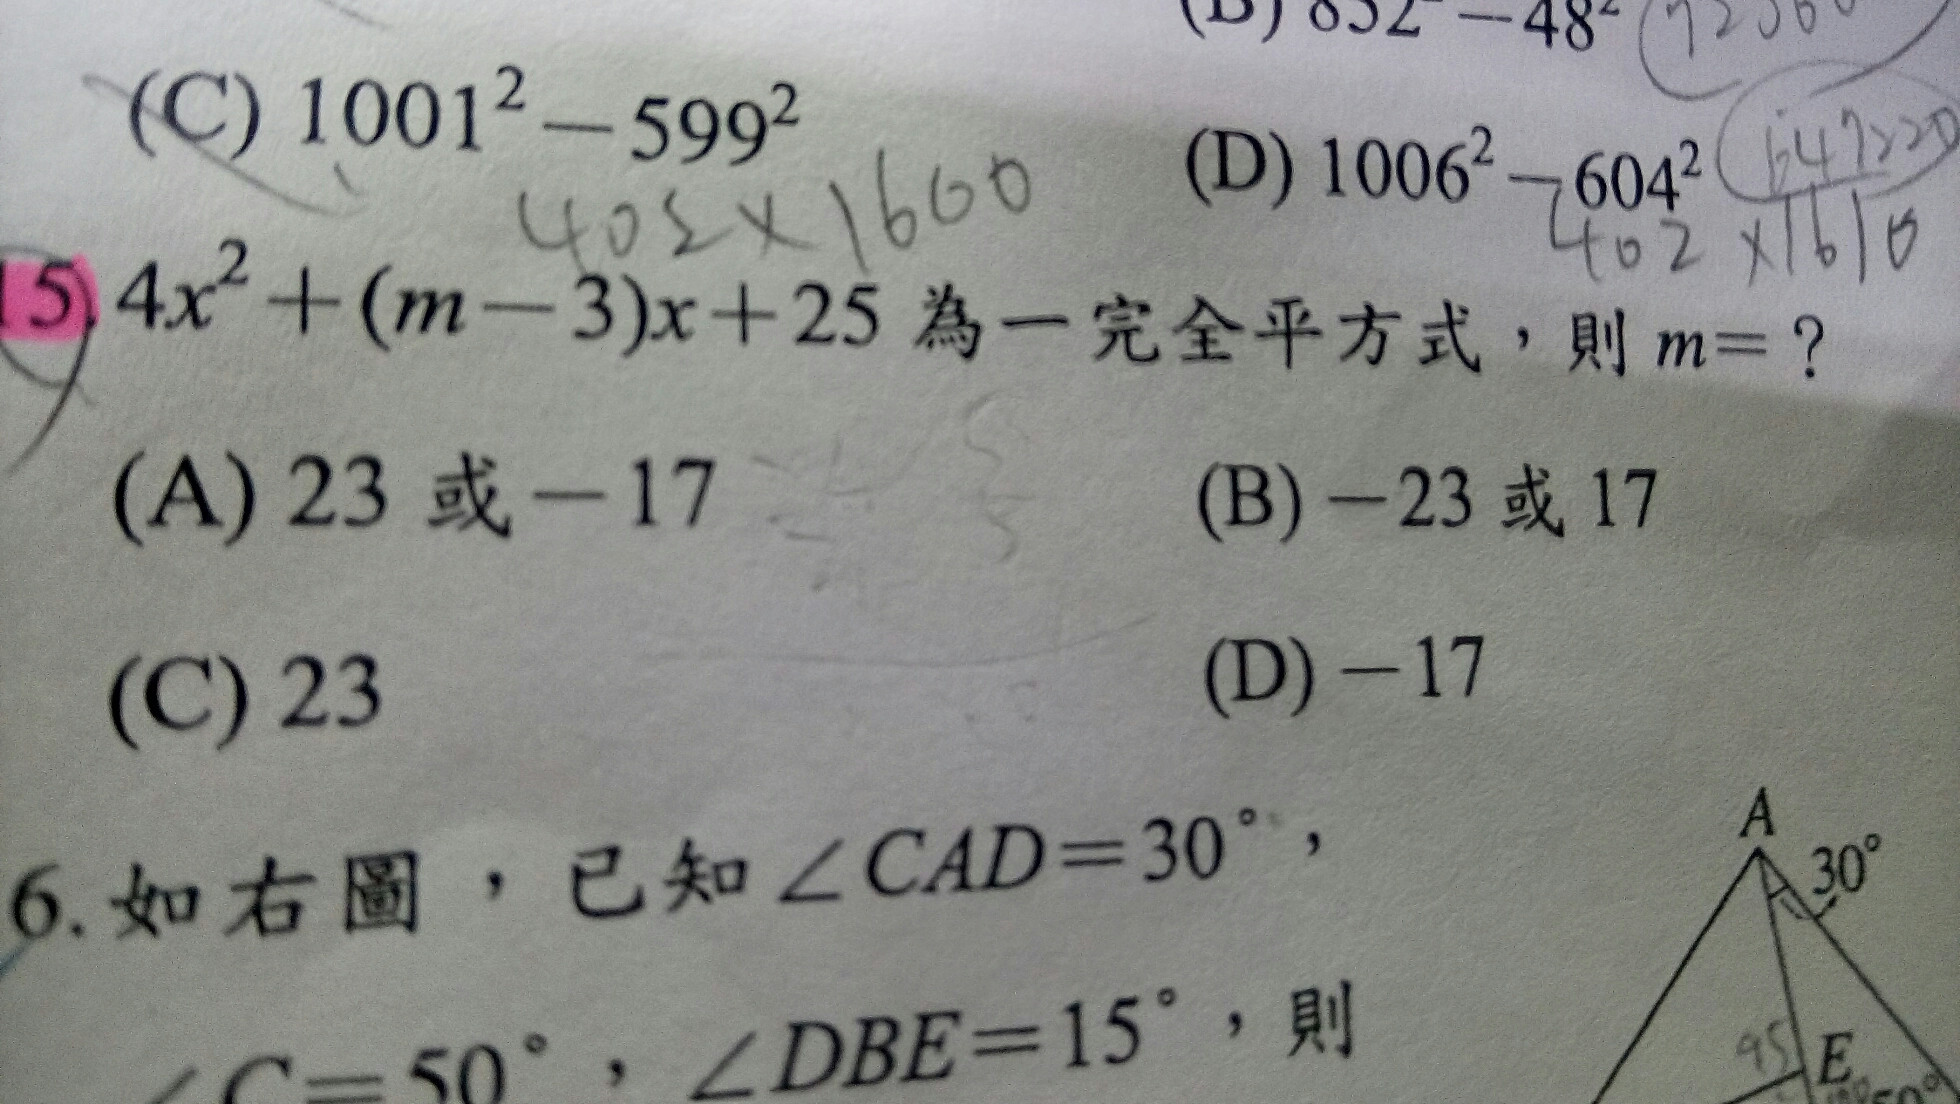 (B) 852² － 48²
(C) 1001² － 599²
(D) 1006² － 604²
402 × 1600
402 × 1610
15. 4x² ＋ (m － 3)x ＋ 25 為一完全平方式，則 m＝？
(A) 23 或 －17
(B) －23 或 17
(C) 23
(D) －17
6. 如右圖，已知∠CAD＝30°，
∠C＝50°，∠DBE＝15°，則
A
30°
95
E
50°